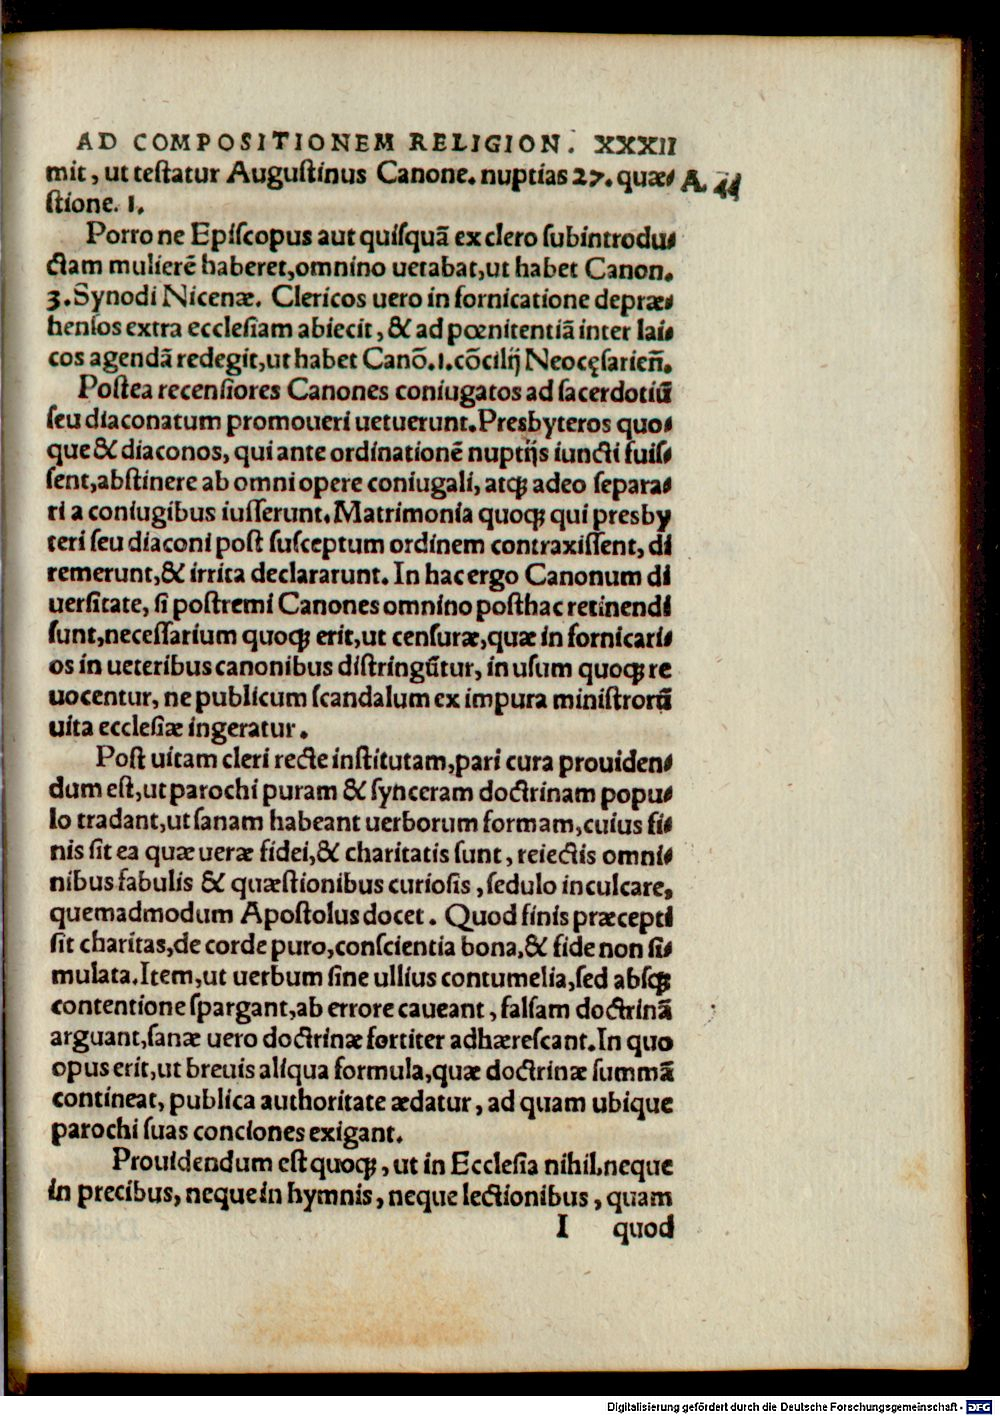 AD COMPOSITIONEM RELIGION. XXXII
mit, ut testatur Augustinus Canone. nuptias 27. quæ-
stione. 1.
Porro ne Episcopus aut quisquã ex clero subintrodu-
ctam mulierẽ haberet, omnino uetabat, ut habet Canon.
3. Synodi Nicenæ. Clericos uero in fornicatione depræ-
hensos extra ecclesiam abiecit, & ad pœnitentiã inter lai-
cos agendã redegit, ut habet Canõ. 1. cõcilij Neocęsarieñ.
Postea recensiores Canones coniugatos ad sacerdotiũ
seu diaconatum promoueri uetuerunt. Presbyteros quo-
que & diaconos, qui ante ordinationẽ nuptijs iuncti fuis-
sent, abstinere ab omni opere coniugali, atqꝫ adeo separa-
ri a coniugibus iusserunt. Matrimonia quoqꝫ qui presby
teri seu diaconi post susceptum ordinem contraxissent, di
remerunt, & irrita declararunt. In hac ergo Canonum di
uersitate, si postremi Canones omnino posthac retinendi
sunt, necessarium quoqꝫ erit, ut censuræ, quæ in fornicari-
os in ueteribus canonibus distringũtur, in usum quoqꝫ re
uocentur, ne publicum scandalum ex impura ministrorũ
uita ecclesiæ ingeratur.
Post uitam cleri recte institutam, pari cura prouiden-
dum est, ut parochi puram & synceram doctrinam popu-
lo tradant, ut sanam habeant uerborum formam, cuius fi-
nis sit ea quæ ueræ fidei, & charitatis sunt, reiectis omni-
nibus fabulis & quæstionibus curiosis, sedulo inculcare,
quemadmodum Apostolus docet. Quod finis præcepti
sit charitas, de corde puro, conscientia bona, & fide non si-
mulata. Item, ut uerbum sine ullius contumelia, sed absqꝫ
contentione spargant, ab errore caueant, falsam doctrinã
arguant, sanæ uero doctrinæ fortiter adhærescant. In quo
opus erit, ut breuis aliqua formula, quæ doctrinæ summã
contineat, publica authoritate ædatur, ad quam ubique
parochi suas conciones exigant.
Prouidendum est quoqꝫ, ut in Ecclesia nihil, neque
in precibus, neque in hymnis, neque lectionibus, quam
I quod
Digitalisierung gefördert durch die Deutsche Forschungsgemeinschaft - DFG